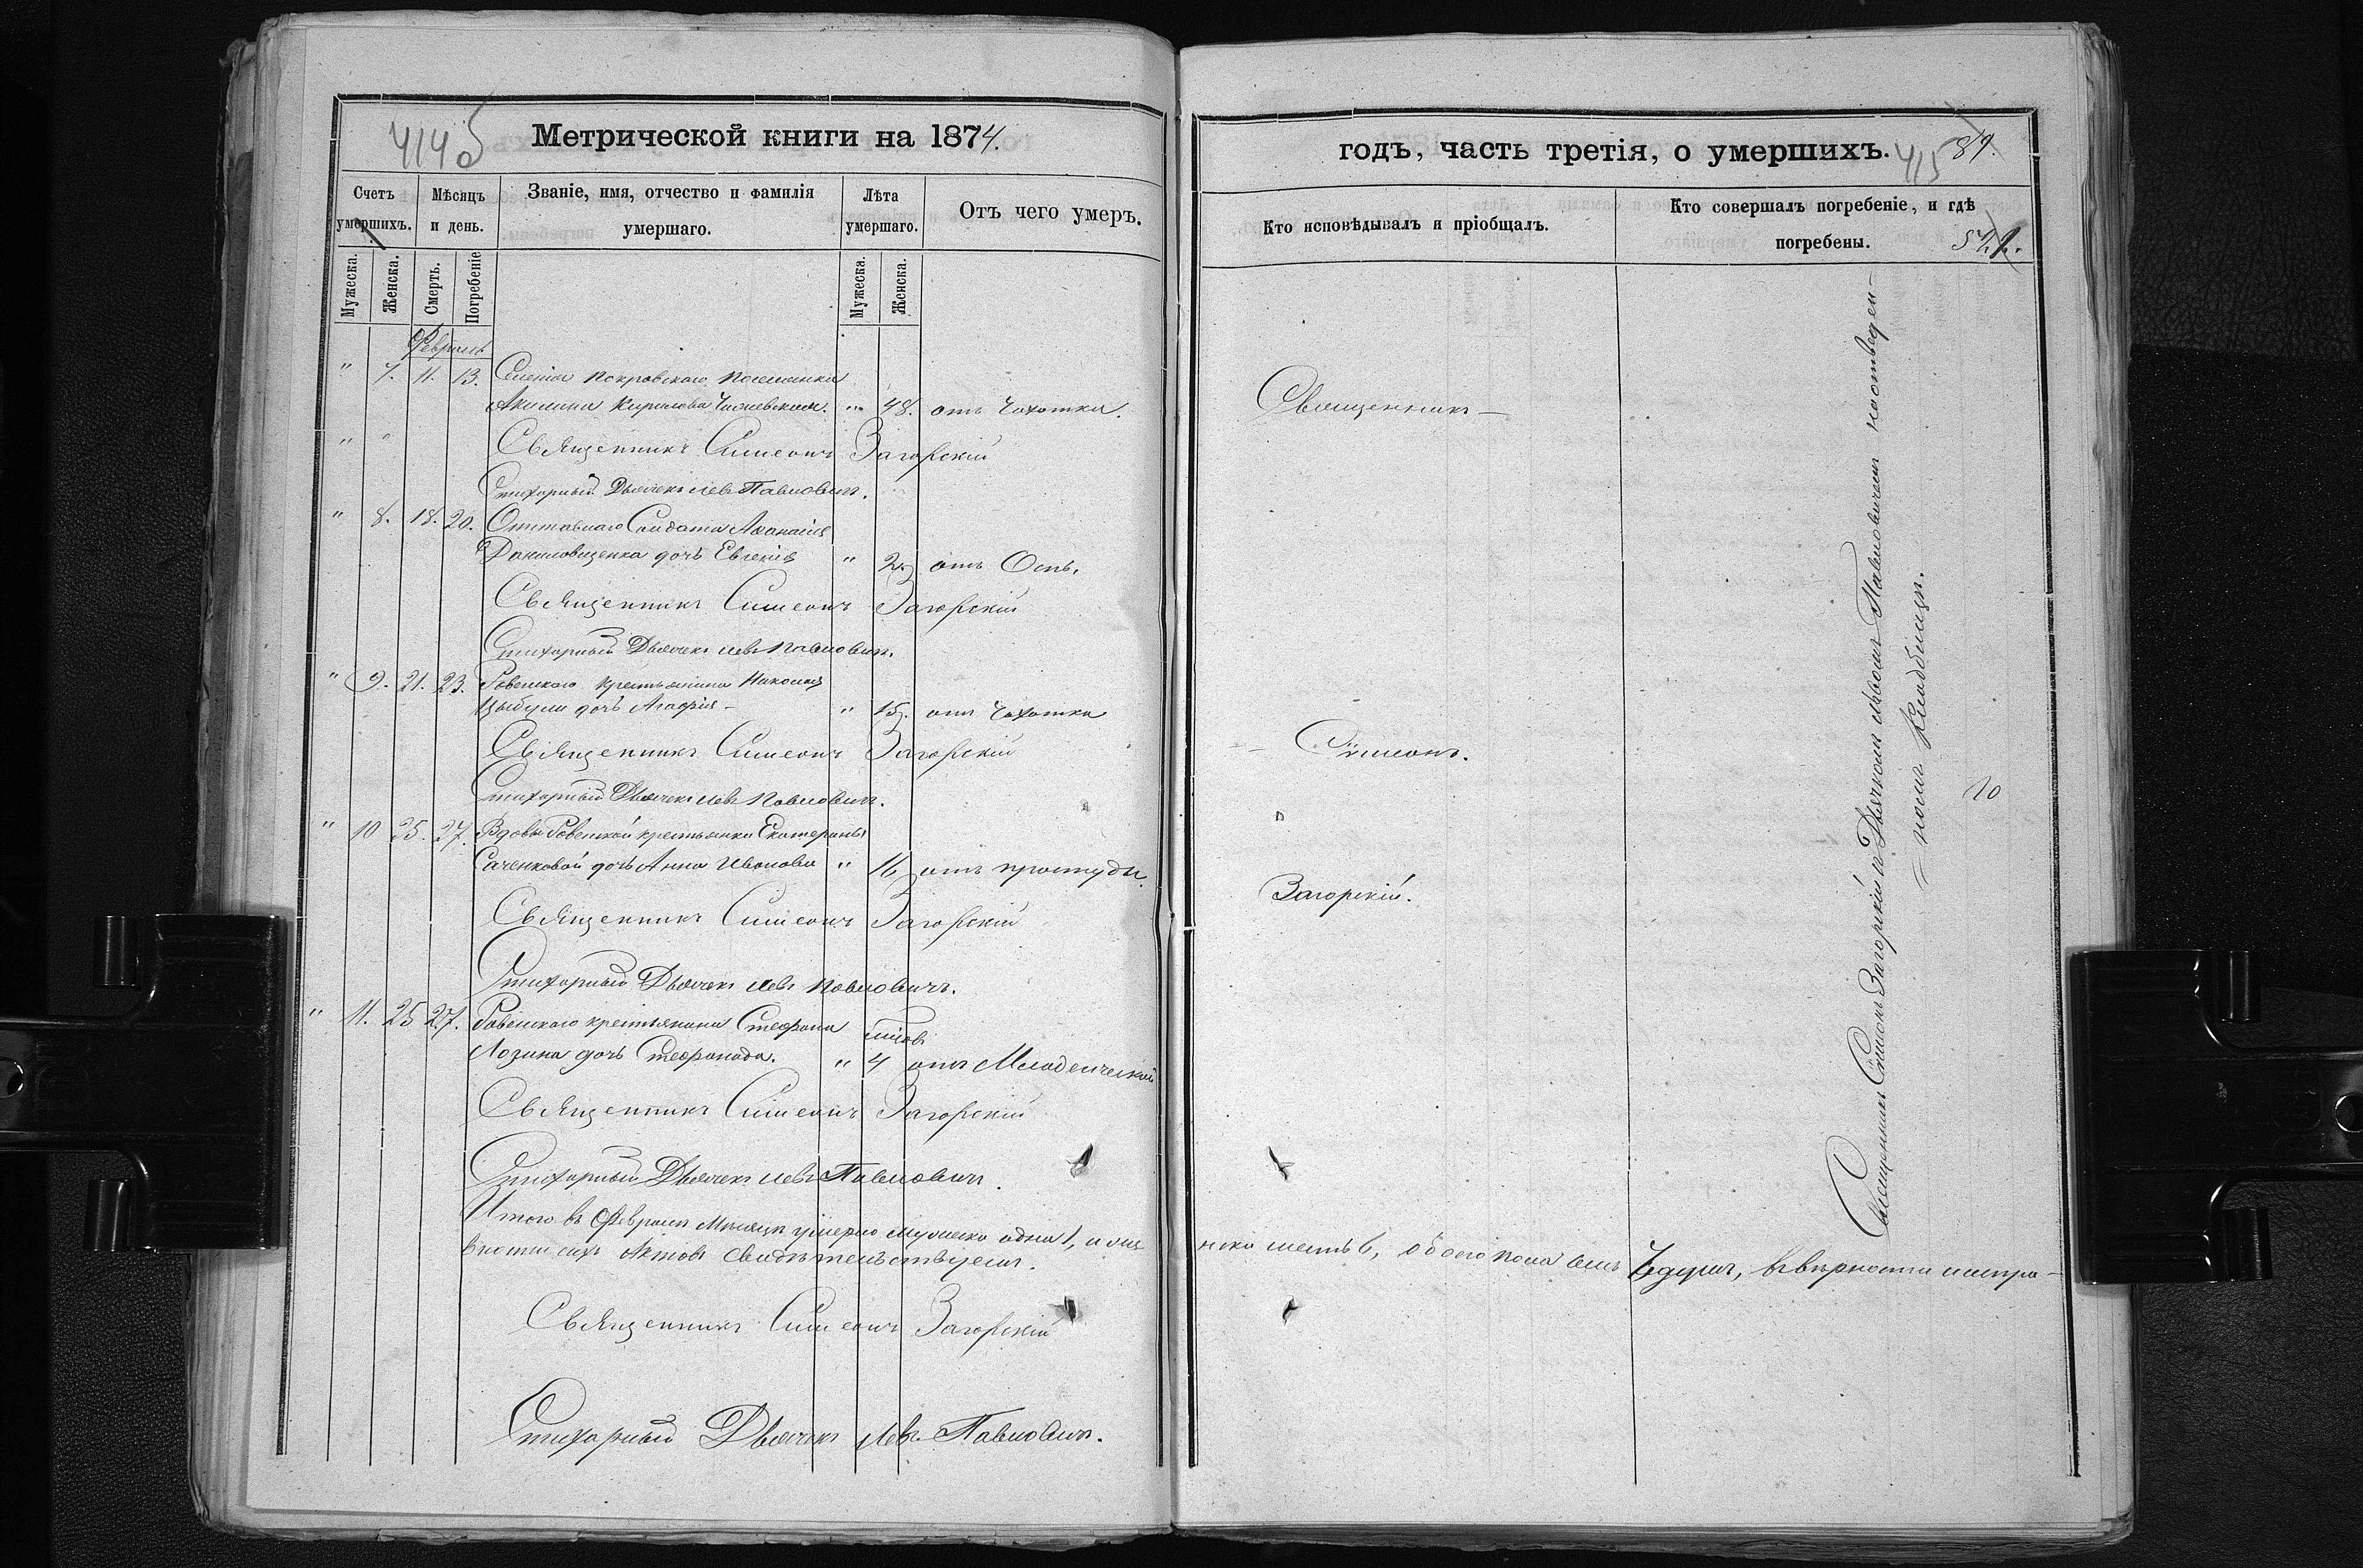 414 б
Метрической книги на 1874.
Счетъ умершихъ.
Мѣсяцъ и день.
Званіе, имя, отчество и фамилія умершаго.
Лѣта умершаго.
Отъ чего умеръ.
Мужеска.
Женска.
Смерть.
Погребеніе
Мужеска.
Женска.
Февраль
" 7. 11. 13. Селенія Покровскаго поселянка
Акилина Кирилова " 48. отъ Чахотки.
" " Священникъ Симеонъ Загорскій
Стихарный Дьячекъ Левъ Павловичъ.
" 8. 18. 20. Отставнаго Солдата Афанасія
Даниловщенка дочь Евгенія " 2. отъ Оспы.
Священникъ Симеонъ Загорскій
Стихарный Дьячекъ Левъ Павловичъ.
" 9. 21. 23. Ровенскаго крестьянина Николая
Цыбули дочь Агафія " 15. отъ Чахотки
Священникъ Симеонъ Загорскій
Стихарный Дьячекъ Левъ Павловичъ.
" 10 25. 27. Вдовы Ровенской крестьянки Екатерины
Саченковой дочь Анна Иванова " 16 отъ простуды.
Священникъ Симеонъ Загорскій
Стихарный Дьячекъ Левъ Павловичъ.
" 11. 25 27. Ровенскаго крестьянина Стефана
Лозина дочь Стефанида. " 4 отъ Младенческой
Священникъ Симеонъ Загорскій
Стихарный Дьячекъ Левъ Павловичъ.
Итого въ Февралѣ Мѣсяцѣ умерло мужеска одна 1, и же
вности сихъ Актовъ свидѣтельствуемъ.
Священникъ Симеонъ Загорскій
Стихарный Дьячекъ Левъ Павловичъ.
годъ, часть третія, о умершихъ.
415
89.
Кто исповѣдывалъ и пріобщалъ.
Кто совершалъ погребеніе, и гдѣ погребены.
Священникъ
Симеонъ.
Загорскій.
Священникъ Симеонъ Загорскій съ Дьячкомъ Львомъ Павловичемъ на отведен-
номъ Кладбищѣ.
10
нска шесть 6, обоего пола семь 7 душъ, въ вѣрности и испра-